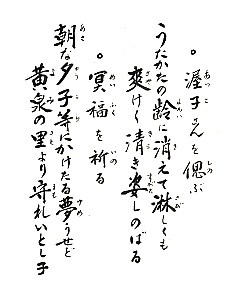 。渥子さんを偲ぶ
うたかたの齢に消えて淋しくも
爽けく清き姿しのばる
。冥福を祈る
朝な夕子等にかけたる夢うせど
黄泉の里より守れいとし子